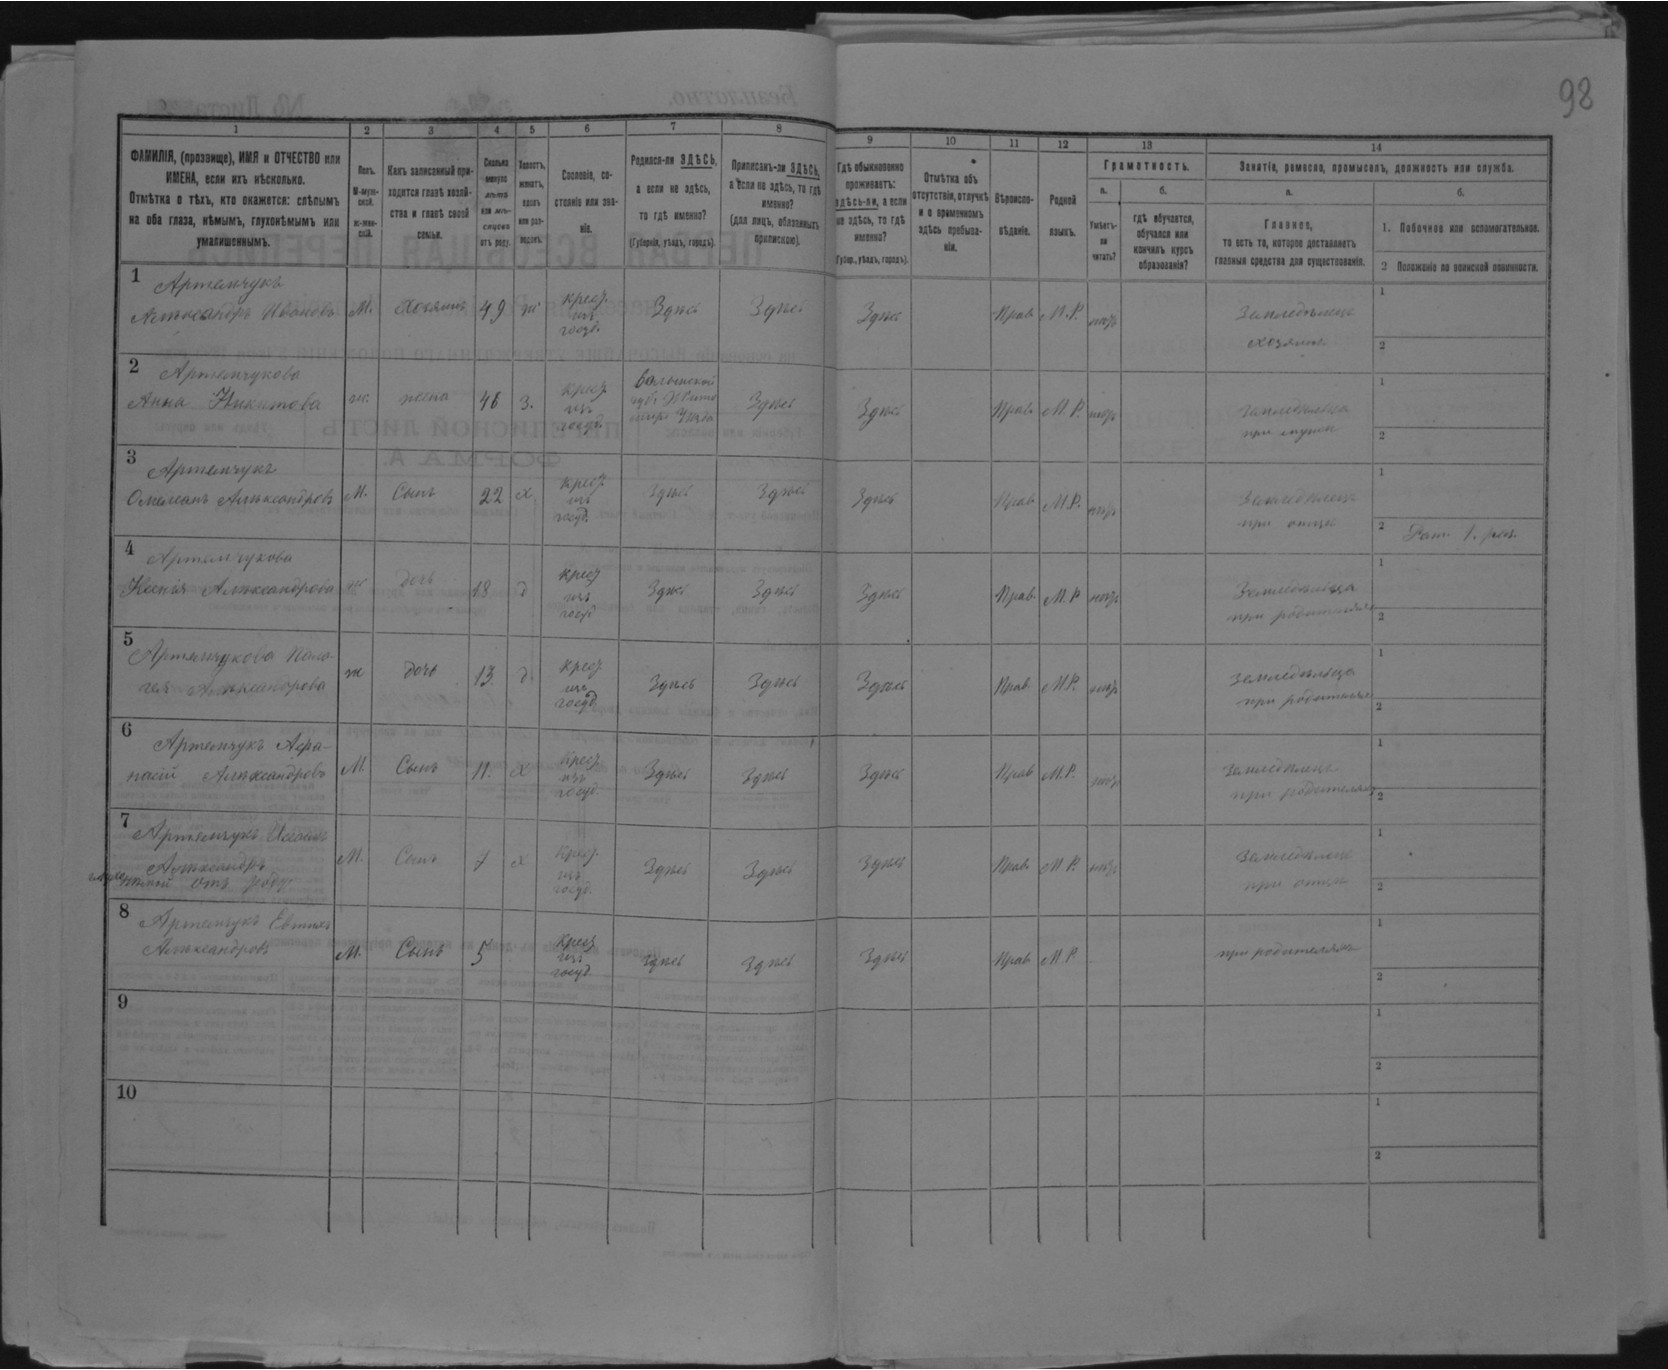 98
1 2 3 4 5 6 7 8 9 10 11 12 13 14
ФАМИЛІЯ, (прозвище), ИМЯ и ОТЧЕСТВО или
ИМЕНА, если ихъ нѣсколько.
Отмѣтка о тѣхъ, кто окажется: слѣпымъ
на оба глаза, нѣмымъ, глухонѣмымъ или
умалишеннымъ.
Полъ.
М-муж-
ской.
Ж-жен-
скій.
Какъ записанный при-
ходится главѣ хозяй-
ства и главѣ своей
семьи.
Сколько
минуло
лѣтъ
или мѣ-
сяцевъ
отъ роду.
Холостъ,
женатъ,
вдовъ
или раз-
веденъ.
Сословіе, со-
стояніе или зва-
ніе.
Родился-ли ЗДѢСЬ,
а если не здѣсь,
то гдѣ именно?
(Губернія, уѣздъ, городъ).
Приписанъ-ли ЗДѢСЬ,
а если не здѣсь, то гдѣ
именно?
(для лицъ, обязанныхъ
припискою).
Гдѣ обыкновенно
проживаетъ:
здѣсь-ли, а если
не здѣсь, то гдѣ
именно?
(Губер., уѣздъ, городъ).
Отмѣтка объ
отсутствіи, отлучкѣ
и о временномъ
здѣсь пребыва-
ніи.
Вѣроиспо-
вѣданіе.
Родной
языкъ.
Грамотность.
а.
Умѣетъ-
ли
читать?
б.
гдѣ обучается,
обучался или
кончилъ курсъ
образованія?
Занятіе, ремесло, промыселъ, должность или служба.
а.
Главное,
то есть то, которое доставляетъ
главныя средства для существованія.
б.
1. Побочное или вспомогательное.
2 Положеніе по воинской повинности.
1 Артемчукъ
Александръ Ивановъ М. Хозяинъ 49 ж крест. изъ госуд. Здѣсь Здѣсь Здѣсь Прав. М.Р. нѣтъ Земледѣлецъ хозяинъ
1
2
2 Артемчукова
Анна Никитова ж. жена 48 з. крест. изъ госуд. Волынской губ. Жито мир. Уѣзда Здѣсь Здѣсь Прав. М.Р. нѣтъ Земледѣлка при мужѣ
1
2
3 Артемчукъ
Омелианъ Александровъ М. Сынъ 22 х крест. изъ госуд. Здѣсь Здѣсь Здѣсь Прав М.Р. нѣтъ Земледѣлецъ при отцѣ
1
2 Рат. 1. раз.
4 Артемчукова
Ксенія Александрова ж дочь 18 д крест изъ госуд Здѣсь Здѣсь Здѣсь Прав. М.Р нѣтъ Земледѣльца при родителяхъ
1
2
5 Артемчукова Пела-
гея Александрова ж дочь 13 д крест изъ госуд Здѣсь Здѣсь Здѣсь Прав. М.Р. нѣтъ Земледѣльца при родителяхъ
1
2
6 Артемчукъ Афа-
насій Александровъ М. Сынъ 11. х крест. изъ госуд Здѣсь Здѣсь Здѣсь Прав М.Р. нѣтъ Земледѣлецъ при родителяхъ
1
2
7 Артемчукъ
Александръ
нѣмой отъ роду М. Сынъ 7 х крест. изъ госуд. Здѣсь Здѣсь Здѣсь Прав М Р. нѣтъ Земледѣлецъ при отцѣ
1
2
8 Артемчукъ
Александровъ М. Сынъ 5 крест изъ госуд. Здѣсь Здѣсь Здѣсь Прав М Р при родителяхъ
1
2
9
1
2
10
1
2